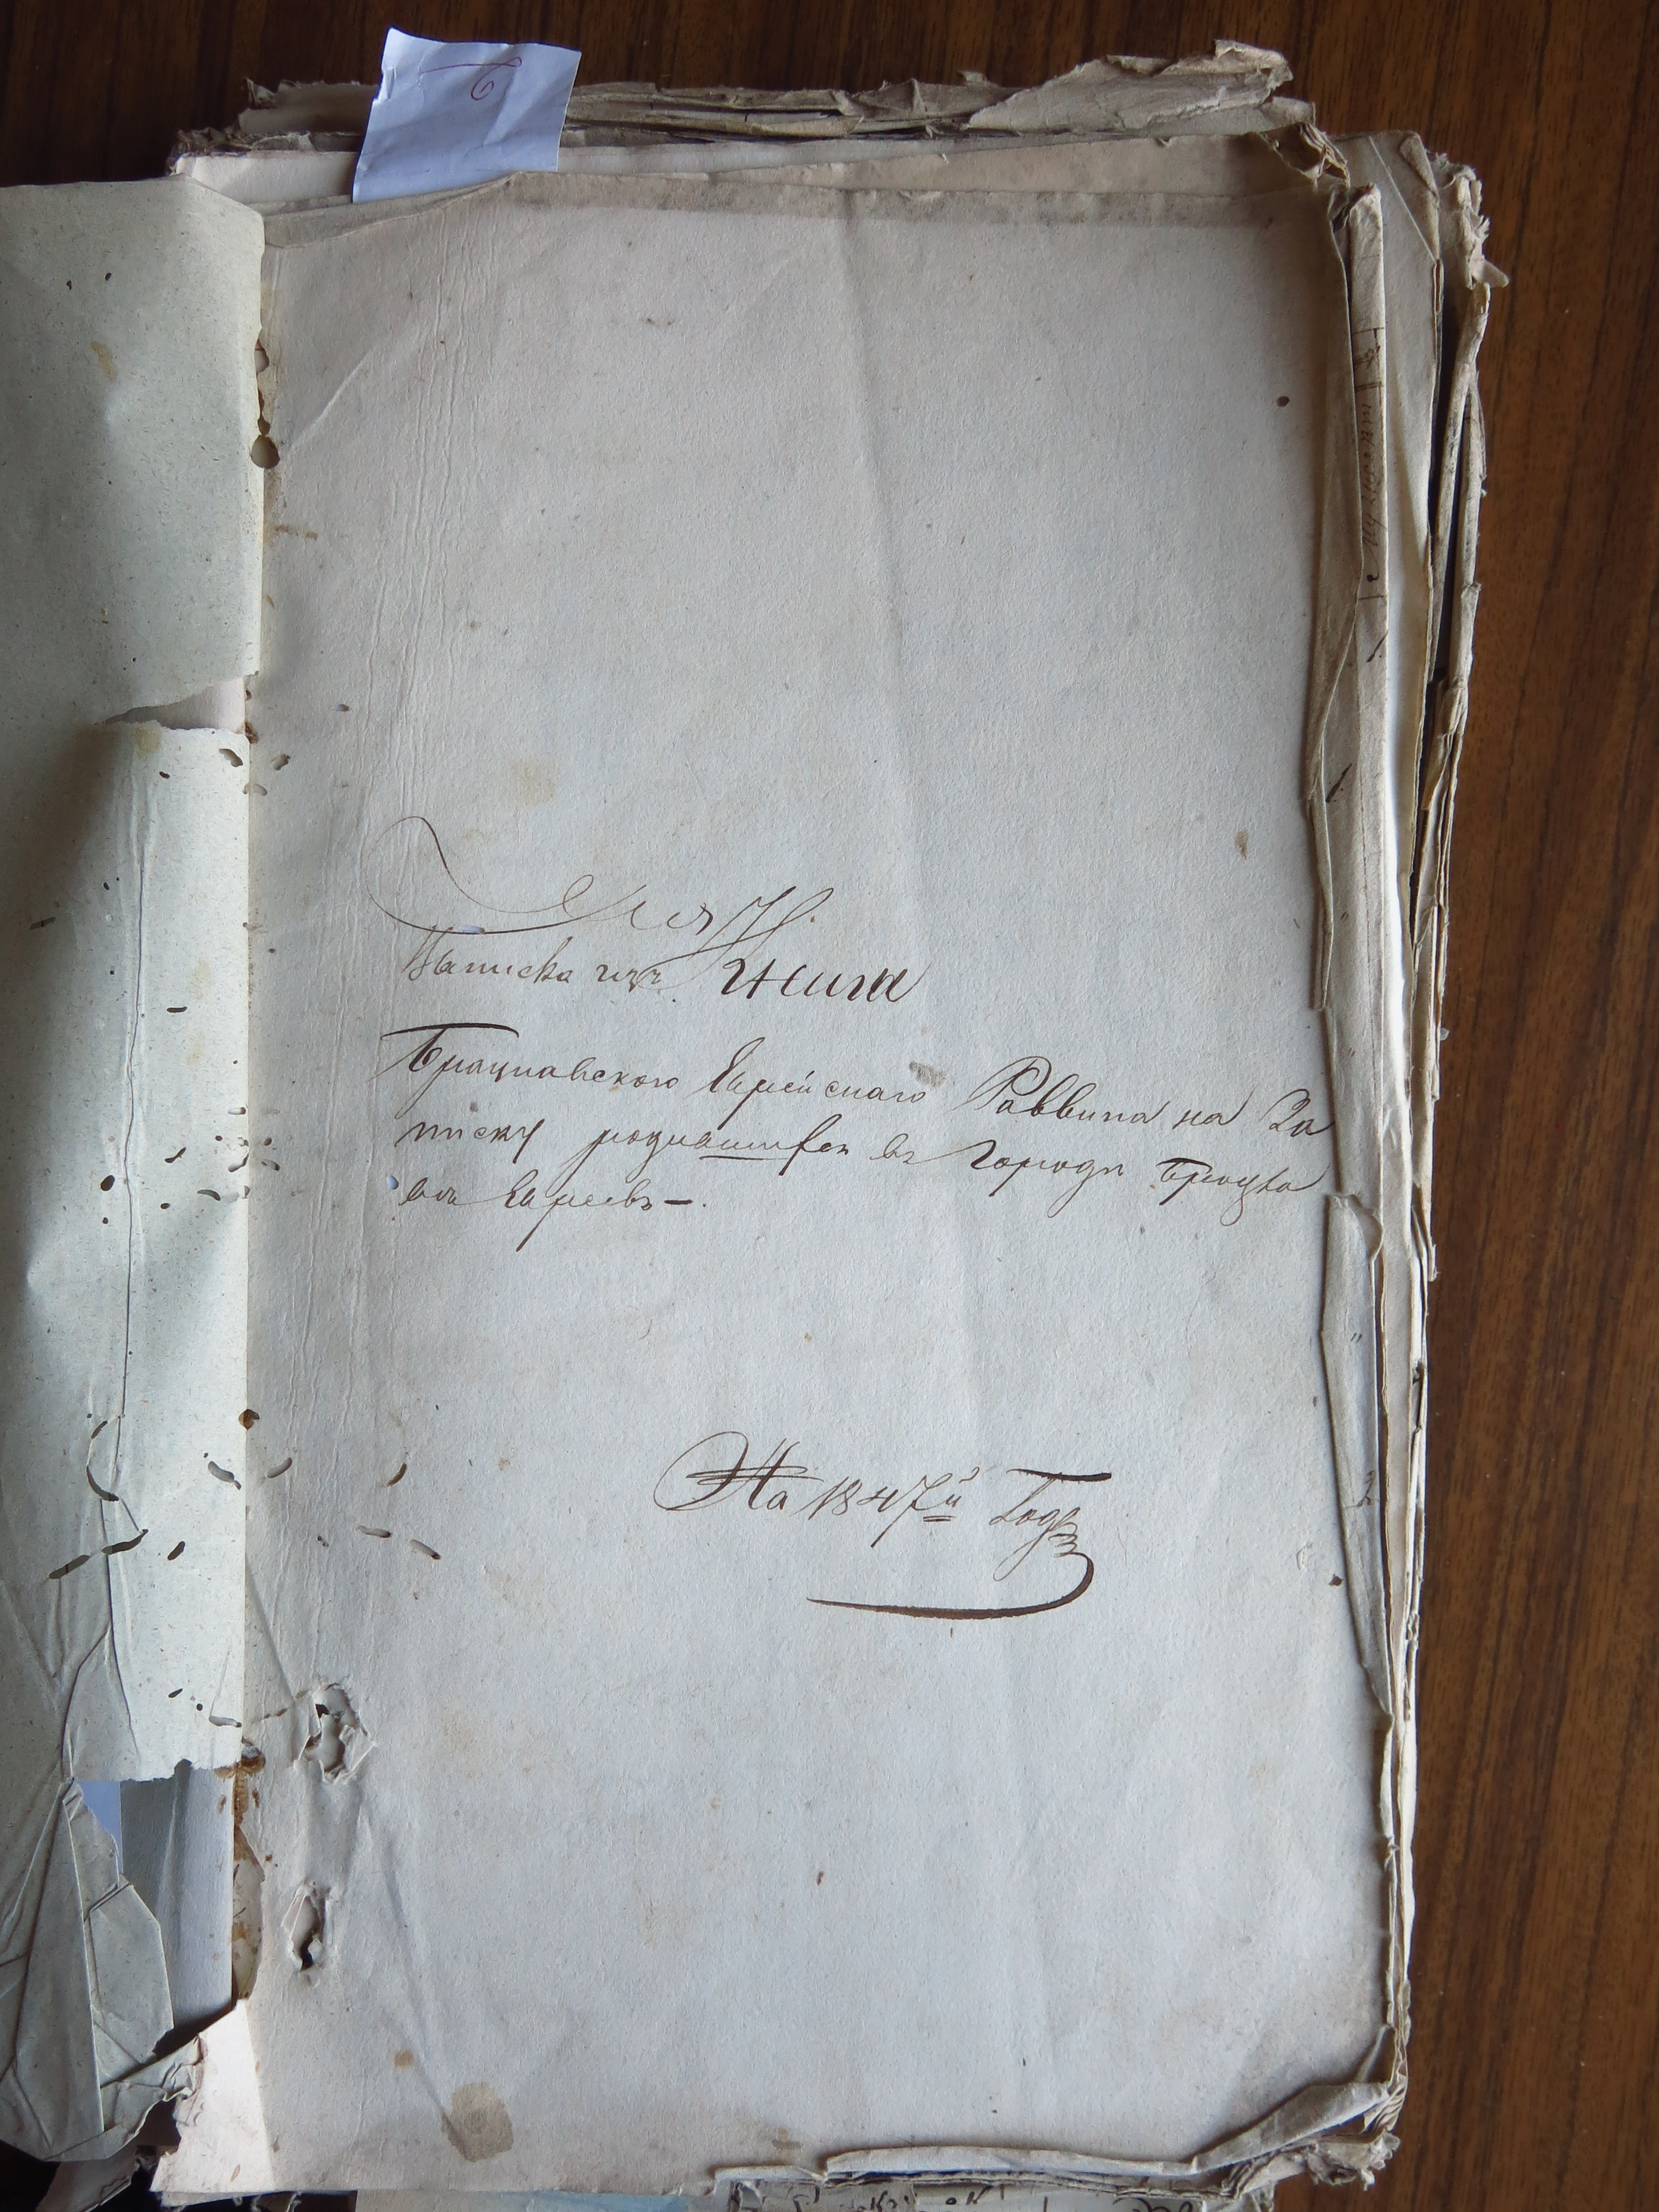 Для
Выписка изъ Книги
Брацлавского Еврейскаго Раввина на За
писку родившихся въ Городѣ Брацла
влѣ Евреевъ —.
На 1847й Годъ